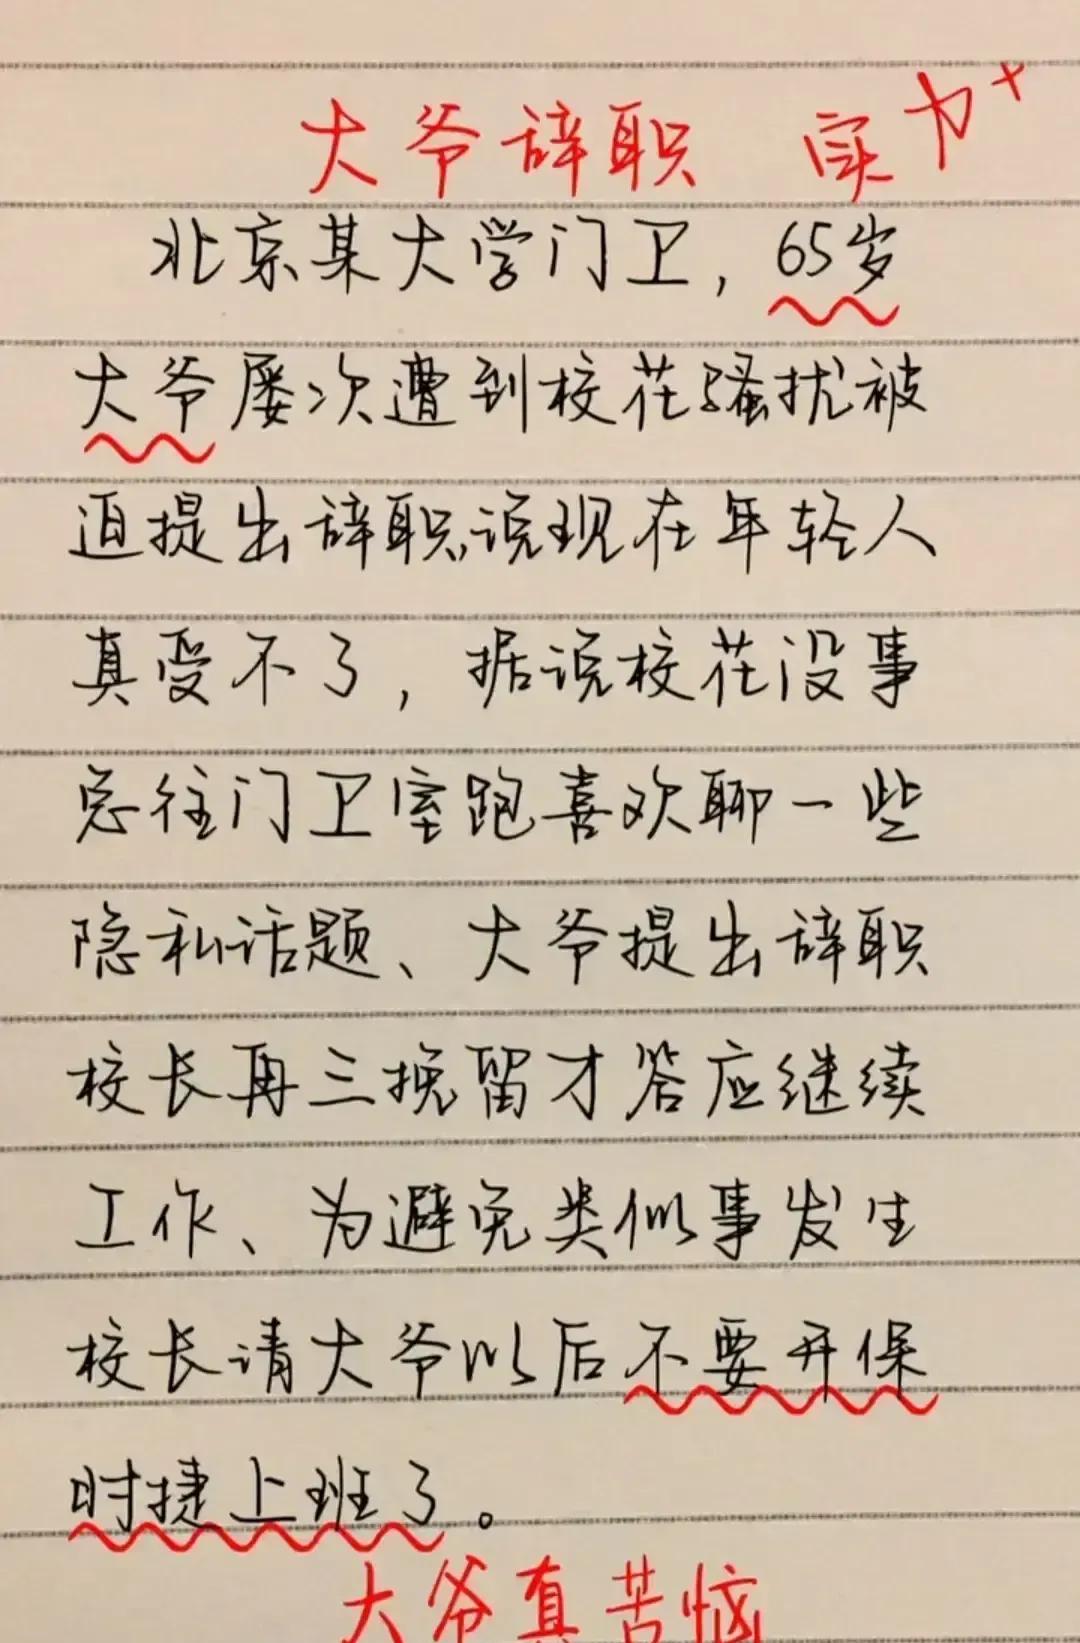 大爷辞职 实力+
北京某大学门卫，65岁
大爷屡次遭到校花骚扰被
迫提出辞职，说现在年轻人
真受不了，据说校花没事
总往门卫室跑喜欢聊一些
隐私话题、大爷提出辞职
校长再三挽留才答应继续
工作、为避免类似事发生
校长请大爷以后不要开保
时捷上班了。
大爷真苦恼